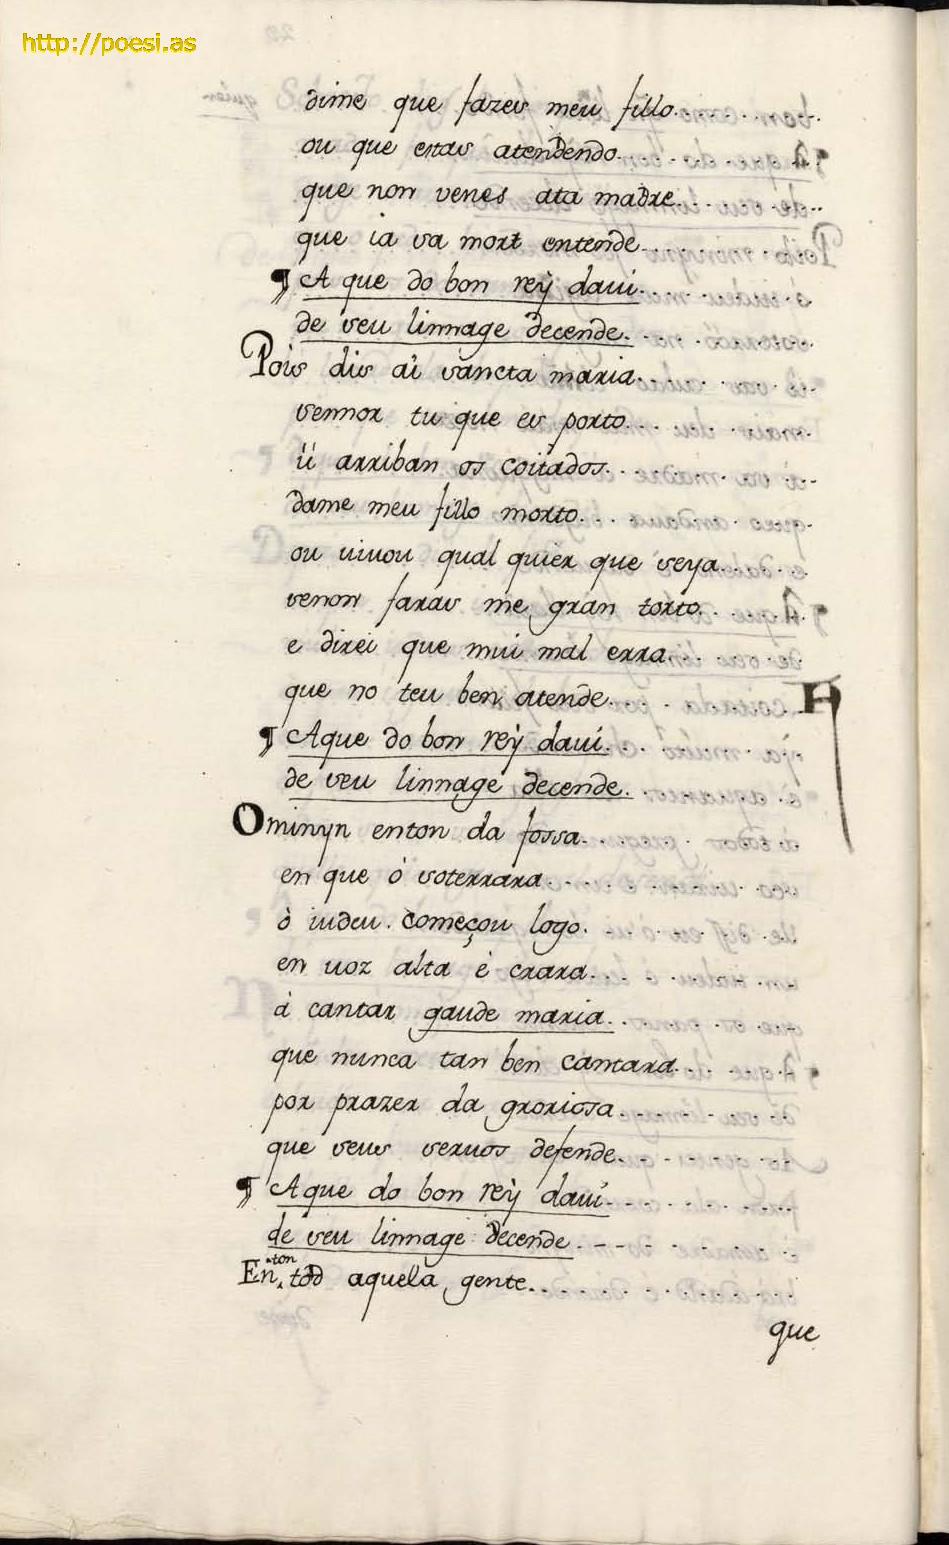 http://poesi.as
dime que fazes meu fillo.
ou que estas atendendo.
que non venes ata madre.
que ia sa mort entende.
¶ A que do bon rey daui.
de seu linnage decende.
Pois dis ai sancta maria.
sennor tu que es porto.
ú arriban os coitados.
dame meu fillo morto.
ou uiuou qual quier que seya.
senon faras me gran torto.
e direi que mui mal erra.
que no teu ben atende.
¶ Aque do bon rey daui.
de seu linnage decende.
Ominyn enton da fossa.
en que ó soterrara.
ò iudeu. começou logo.
en uoz alta é crara.
á cantar gaude maria.
que nunca tan ben cantara.
por prazer da groriosa.
que seus seruos defende.
¶ Aque do bon rey daui
de seu linnage decende.
En ton tod aquela gente.
que